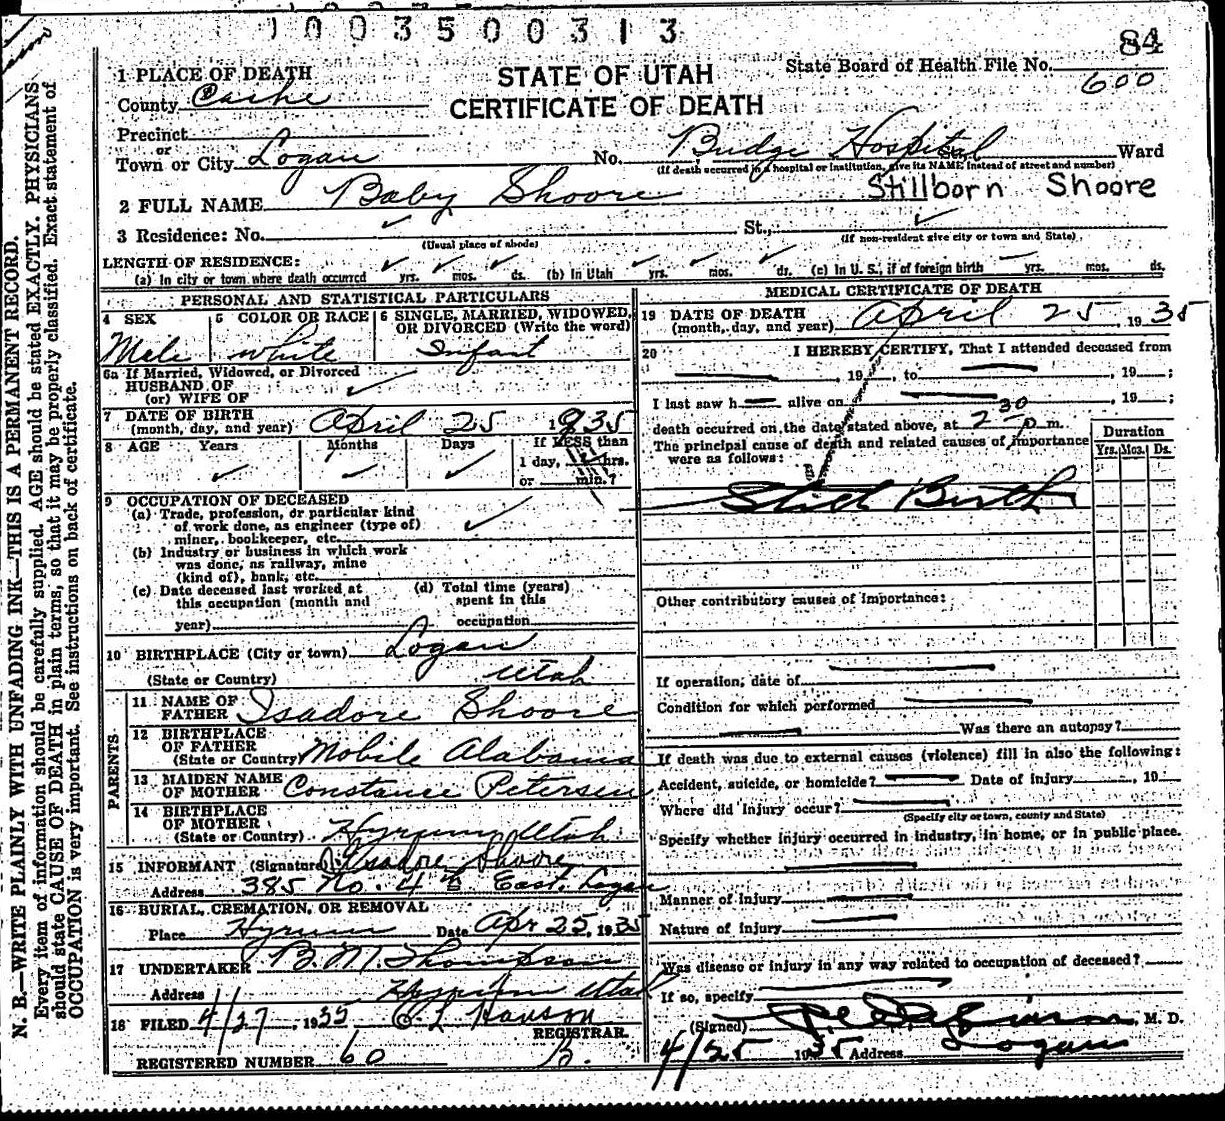 1003500313
84
1 PLACE OF DEATH
STATE OF UTAH
State Board of Health File No. 600
County Cache
CERTIFICATE OF DEATH
Precinct
or
Town or City Logan No. Budge Hospital St., Ward
(If death occurred in a hospital or institution, give its NAME instead of street and number)
Stillborn Shoore
2 FULL NAME Baby Shoore
3 Residence: No. St.,
(Usual place of abode) (If non-resident give city or town and State)
LENGTH OF RESIDENCE:
(a) In city or town where death occurred yrs. mos. ds. (b) In Utah yrs. mos. ds. (c) In U. S., if of foreign birth yrs. mos. ds.
PERSONAL AND STATISTICAL PARTICULARS
4 SEX 5 COLOR OR RACE 6 SINGLE, MARRIED, WIDOWED, OR DIVORCED (Write the word)
Male White Infant
6a If Married, Widowed, or Divorced
HUSBAND OF
(or) WIFE OF
7 DATE OF BIRTH
(month, day, and year) April 25 1935
8 AGE Years Months Days If LESS than
1 day, hrs.
or min.?
9 OCCUPATION OF DECEASED
(a) Trade, profession, or particular kind
of work done, as engineer (type of)
miner, bookkeeper, etc.
(b) Industry or business in which work
was done, as railway, mine
(kind of), bank, etc.
(c) Date deceased last worked at
this occupation (month and
year)
(d) Total time (years)
spent in this
occupation
10 BIRTHPLACE (City or town) Logan
(State or Country) Utah
PARENTS
11 NAME OF
FATHER Isadore Shoore
12 BIRTHPLACE
OF FATHER
(State or Country) Mobile Alabama
13 MAIDEN NAME
OF MOTHER Constance Petersen
14 BIRTHPLACE
OF MOTHER
(State or Country) Hyrum, Utah
15 INFORMANT (Signature) Isadore Shoore
Address 385 No. 4th East. Logan
16 BURIAL, CREMATION, OR REMOVAL
Place Hyrum Date Apr 25, 1935
17 UNDERTAKER B. M. Thompson
Address Hyrum Utah
18 FILED 4/27, 1935 C L Hanson
REGISTRAR.
REGISTERED NUMBER 60 B.
MEDICAL CERTIFICATE OF DEATH
19 DATE OF DEATH
(month, day, and year) April 25 1935
20 I HEREBY CERTIFY, That I attended deceased from
, 19 , to , 19 ;
I last saw h alive on , 19 ;
death occurred on the date stated above, at 2 30 p m.
The principal cause of death and related causes of importance
were as follows:
Duration
Yrs. Mos. Ds.
Still Birth
Other contributory causes of importance:
If operation, date of
Condition for which performed
Was there an autopsy?
If death was due to external causes (violence) fill in also the following:
Accident, suicide, or homicide? Date of injury , 19
Where did injury occur?
(Specify city or town, county and State)
Specify whether injury occurred in industry, in home, or in public place.
Manner of injury
Nature of injury
Was disease or injury in any way related to occupation of deceased?
If so, specify
(Signed) M. D.
4/25 1935 Address Logan
N. B.—WRITE PLAINLY WITH UNFADING INK—THIS IS A PERMANENT RECORD.
Every item of information should be carefully supplied. AGE should be stated EXACTLY. PHYSICIANS
should state CAUSE OF DEATH in plain terms, so that it may be properly classified. Exact statement of
OCCUPATION is very important. See instructions on back of certificate.